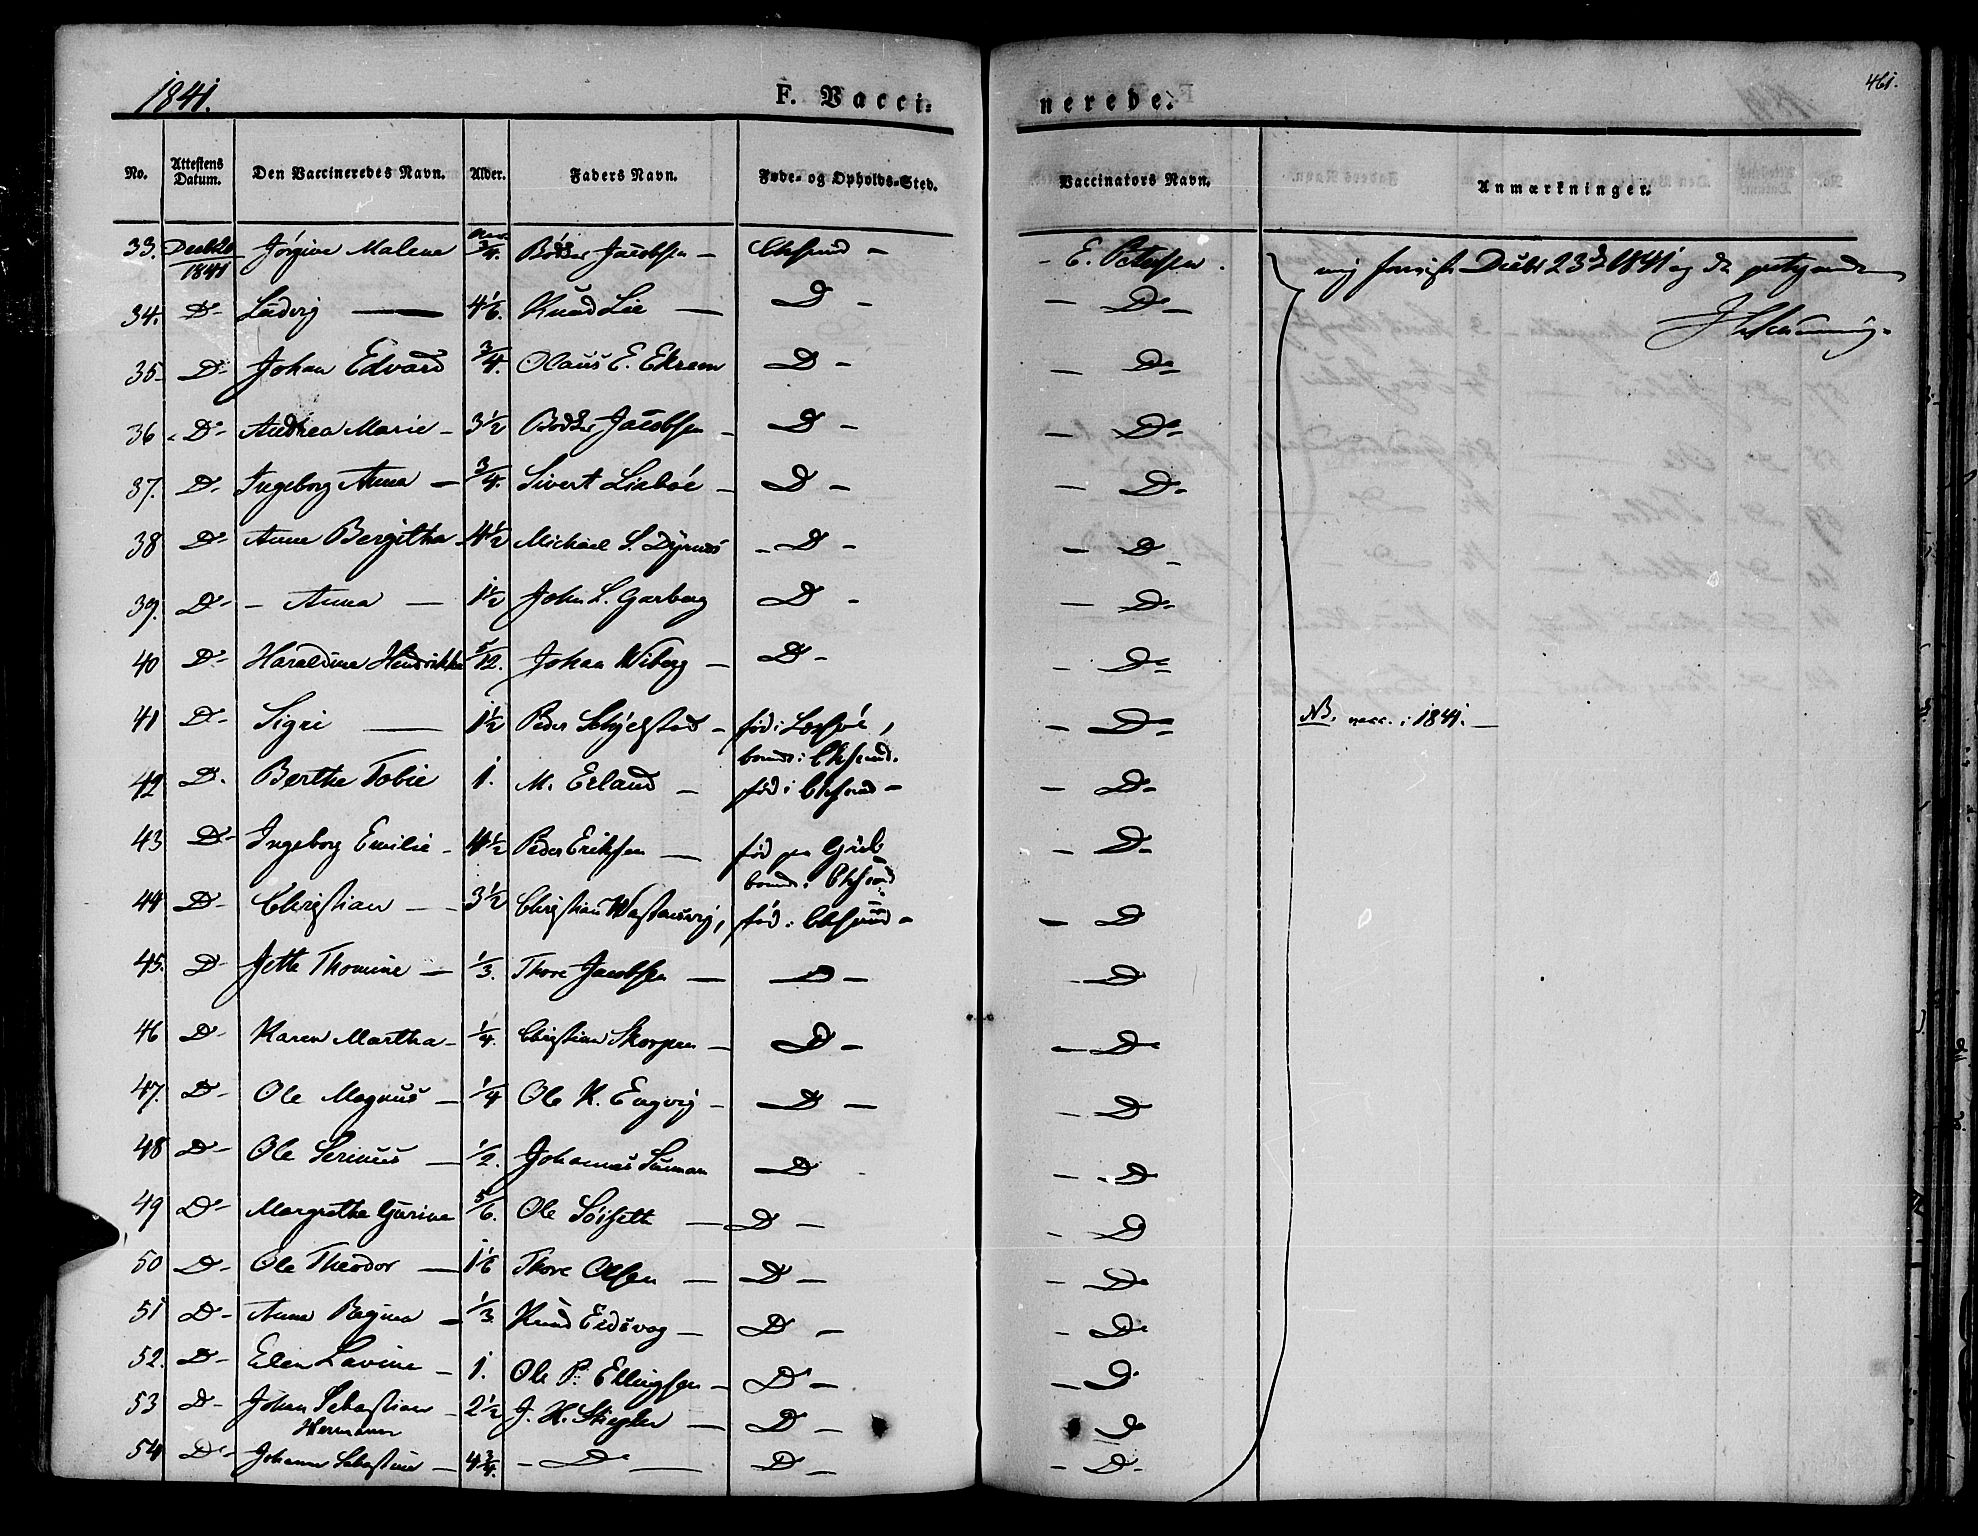 1841.
F. Vacci=
nerede.
461.
No.
Attestens Datum.
Den Vaccineredes Navn.
Alder.
Faders Navn.
Føde- og Opholds-Sted.
Vaccinators Navn.
Anmærkninger.
33. 1841 Jørgine Malene 3/4. Jacobsen — Chsund — E. Petersen. 23d 1841 og
34. D- Ludvig — 4 1/6. Knud Lie — D — D-
35- D- Johan Edvard 3/4. Olaus E. Ekrem D — D-
36 D- Andrea Marie - 3 1/2 Jacobsen - D — D-
37. D- Ingeborg Anna — 3/4. Sivert Lisbøe - D — D-
38 D- Anne Bergitha 4 1/2 Michael S. Dyrnes - D — D-
39. D- - Anna — 1 1/2 John L. Garberg D — D-
40 D- Haraldine Hendrikke 5/12. Johan Wiberg — D — D-
41 D- Sigri — 1 1/2 Peder — fød i — D- NB. vacc. i 1841. —
boende i Chsund.
42 D. Berthe Tobie 1. M. Erland — fød i Chsund — D-
43 D- Ingeborg Emilie - 4 1/2 Peder Eriksen — fød paa — D-
boende i Chsund
44 D- Christian — 3 1/2 Christian fød i Chsund — D
45. D- Jette Thomine — 1/3. Thore Jacobsen — D — D
46 D- Karen Martha - 1/4. Christian Skorpen — D — D-
47. D- Ole Magnus — 1/4 Ole K. Engvig - D — D
48 D- Ole Serinus — 1/2. Johannes D — D
49 D- Margrethe Gurine 5/6. Ole — D — D
50 D- Ole Theodor — 1 1/6 Thore Olsen — D — D-
51 D- Anne Regina — 1/3. Knud Eidsvog — D — D-
52. D- Elen Lavine - 1. Ole P. Ellingsen - D — D-
53 D- Johan Sebastian - 2 1/2 J. H. Stiegler — D — D-
Hermann
54 D- Johanne Sebastine — 4 3/4. - D — D — D-